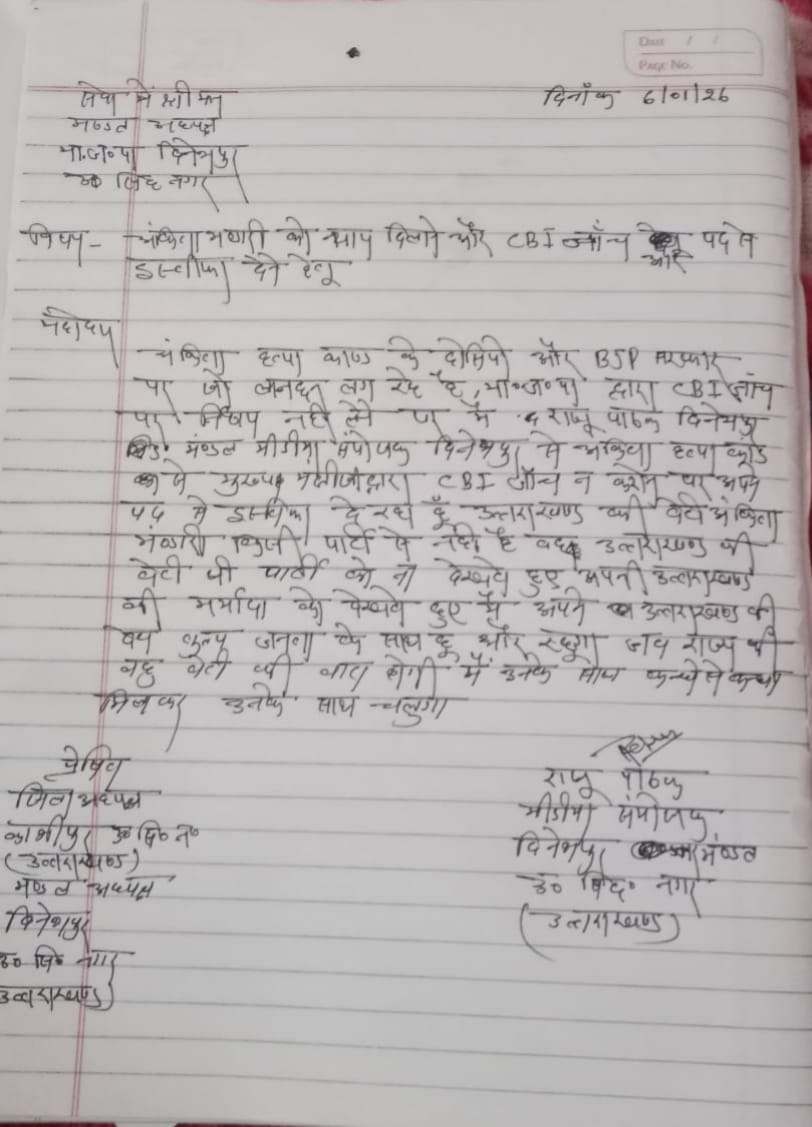 Date / /
Page No.
सेवा में श्रीमान
दिनाँक 6/01/26
मण्डल अध्यक्ष
भा.ज.पा दिनेशपुर
उ० सिंह नगर
विषय - अंकिता भण्डारी को न्याय दिलाने और CBI जाँच हेतु पद से
और
इस्तीफा देने हेतू
महोदय
अंकिता हत्या काण्ड के दोषियो और BJP सरकार
पर जो लग रहे है, भा०ज०पा द्वारा CBI जांच
पर निर्णय नही लेने पर मैं राजू पाठक दिनेशपुर
मंण्डल मीडीया संयोजक दिनेशपुर से अंकिता हत्या कांड
मुख्य मंत्रीजी द्वारा CBI जाँच न कराने पर अपने
पद से इस्तीफा दे रहा हूँ उत्तराखण्ड की बेटी अंकिता
भंण्डारी किसी पार्टी से नही है वह उत्तराखण्ड की
बेटी थी पार्टी को ना देखते हुए अपनी उत्तराखण्ड
की मर्यादा को देखते हुए मैं अपने उत्तराखण्ड की
जनता के साथ हू और रहूगा जब राज्य की
बहु बेटी की बात होगी मैं उनके साथ कन्धे से कन्धा
मिलाकर उनके साथ चलुगा
प्रेषित
राजू पाठक
जिला अध्यक्ष
मीडीया संयोजक
काशीपुर उ० सि० न०
दिनेशपुर मंण्डल
(उत्तराखण्ड)
मण्डल अध्यक्ष
उ० सिंह० नगर
दिनेशपुर
(उत्तराखण्ड)
उ० सि० नगर
उत्तराखण्ड